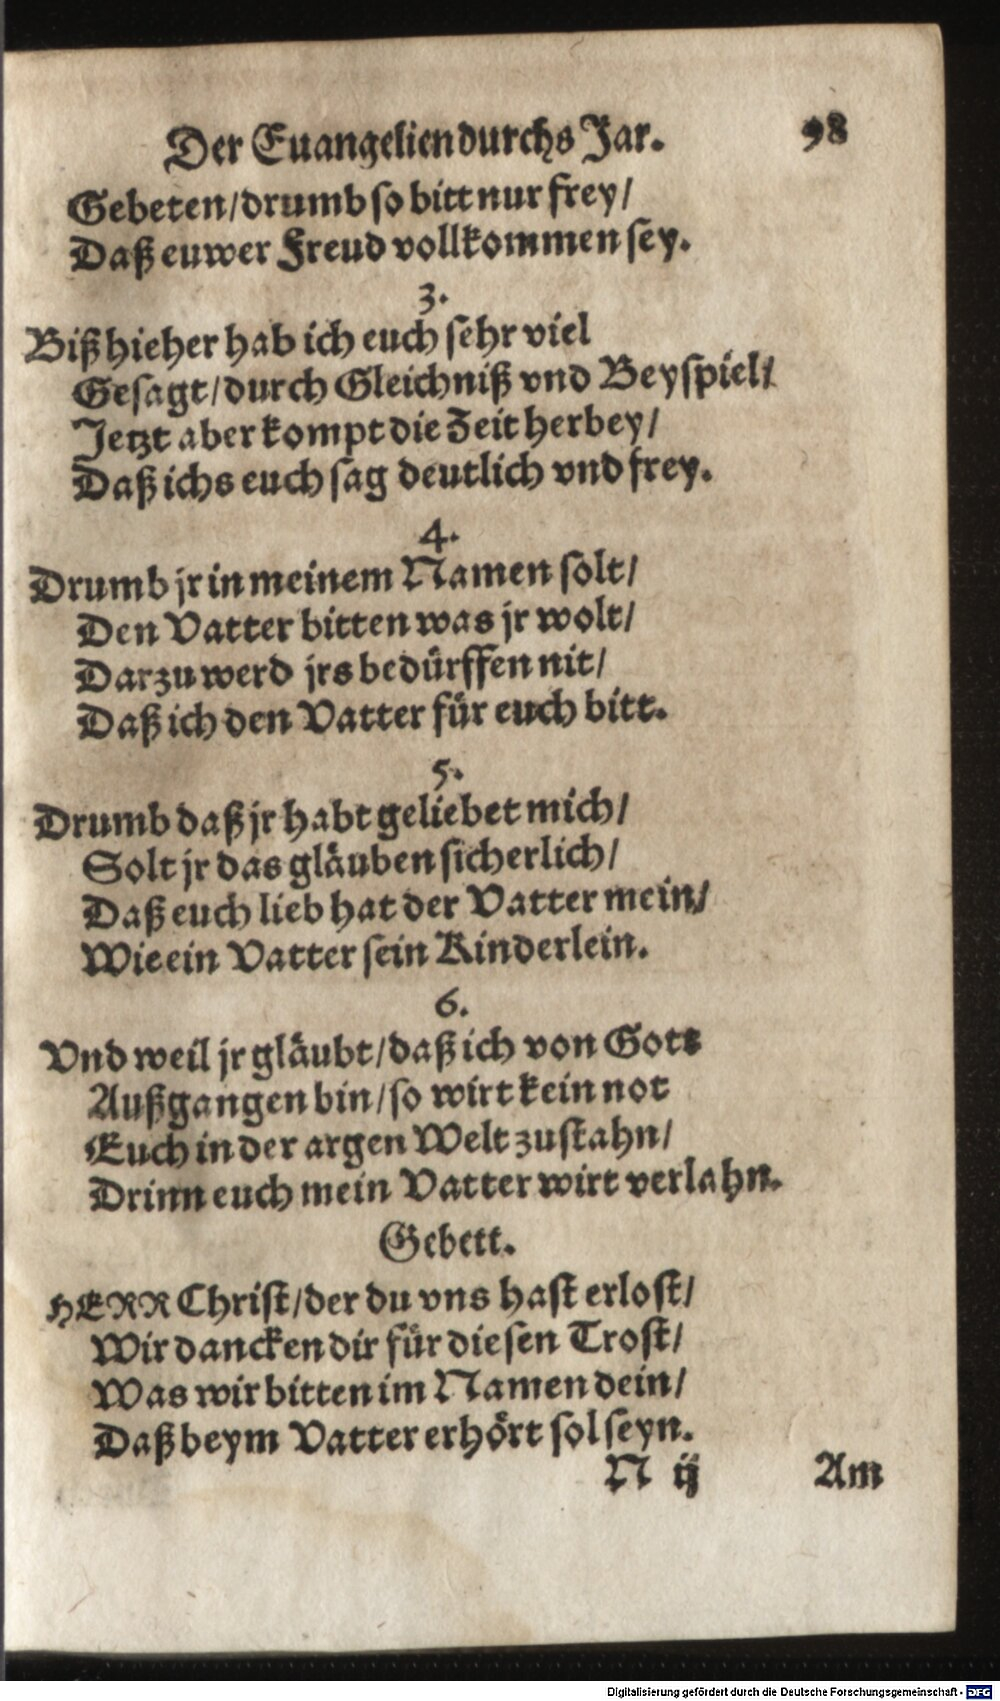 Der Euangelien durchs Jar. 98
Gebeten/drumb so bitt nur frey/
Daß euwer Freud vollkommen sey.
3.
Biß hieher hab ich euch sehr viel
Gesagt/durch Gleichniß vnd Beyspiel/
Jetzt aber kompt die Zeit herbey/
Daß ichs euch sag deutlich vnd frey.
4.
Drumb jr in meinem Namen solt/
Den Vatter bitten was jr wolt/
Darzu werd jrs bedürffen nit/
Daß ich den Vatter für euch bitt.
5.
Drumb daß jr habt geliebet mich/
Solt jr das gläuben sicherlich/
Daß euch lieb hat der Vatter mein/
Wie ein Vatter sein Kinderlein.
6.
Vnd weil jr gläubt/daß ich von Gott
Außgangen bin/so wirt kein not
Euch in der argen Welt zustahn/
Drinn euch mein Vatter wirt verlahn.
Gebett.
HERR Christ/der du vns hast erlost/
Wir dancken dir für diesen Trost/
Was wir bitten im Namen dein/
Daß beym Vatter erhört sol seyn.
N ij Am
Digitalisierung gefördert durch die Deutsche Forschungsgemeinschaft - DFG